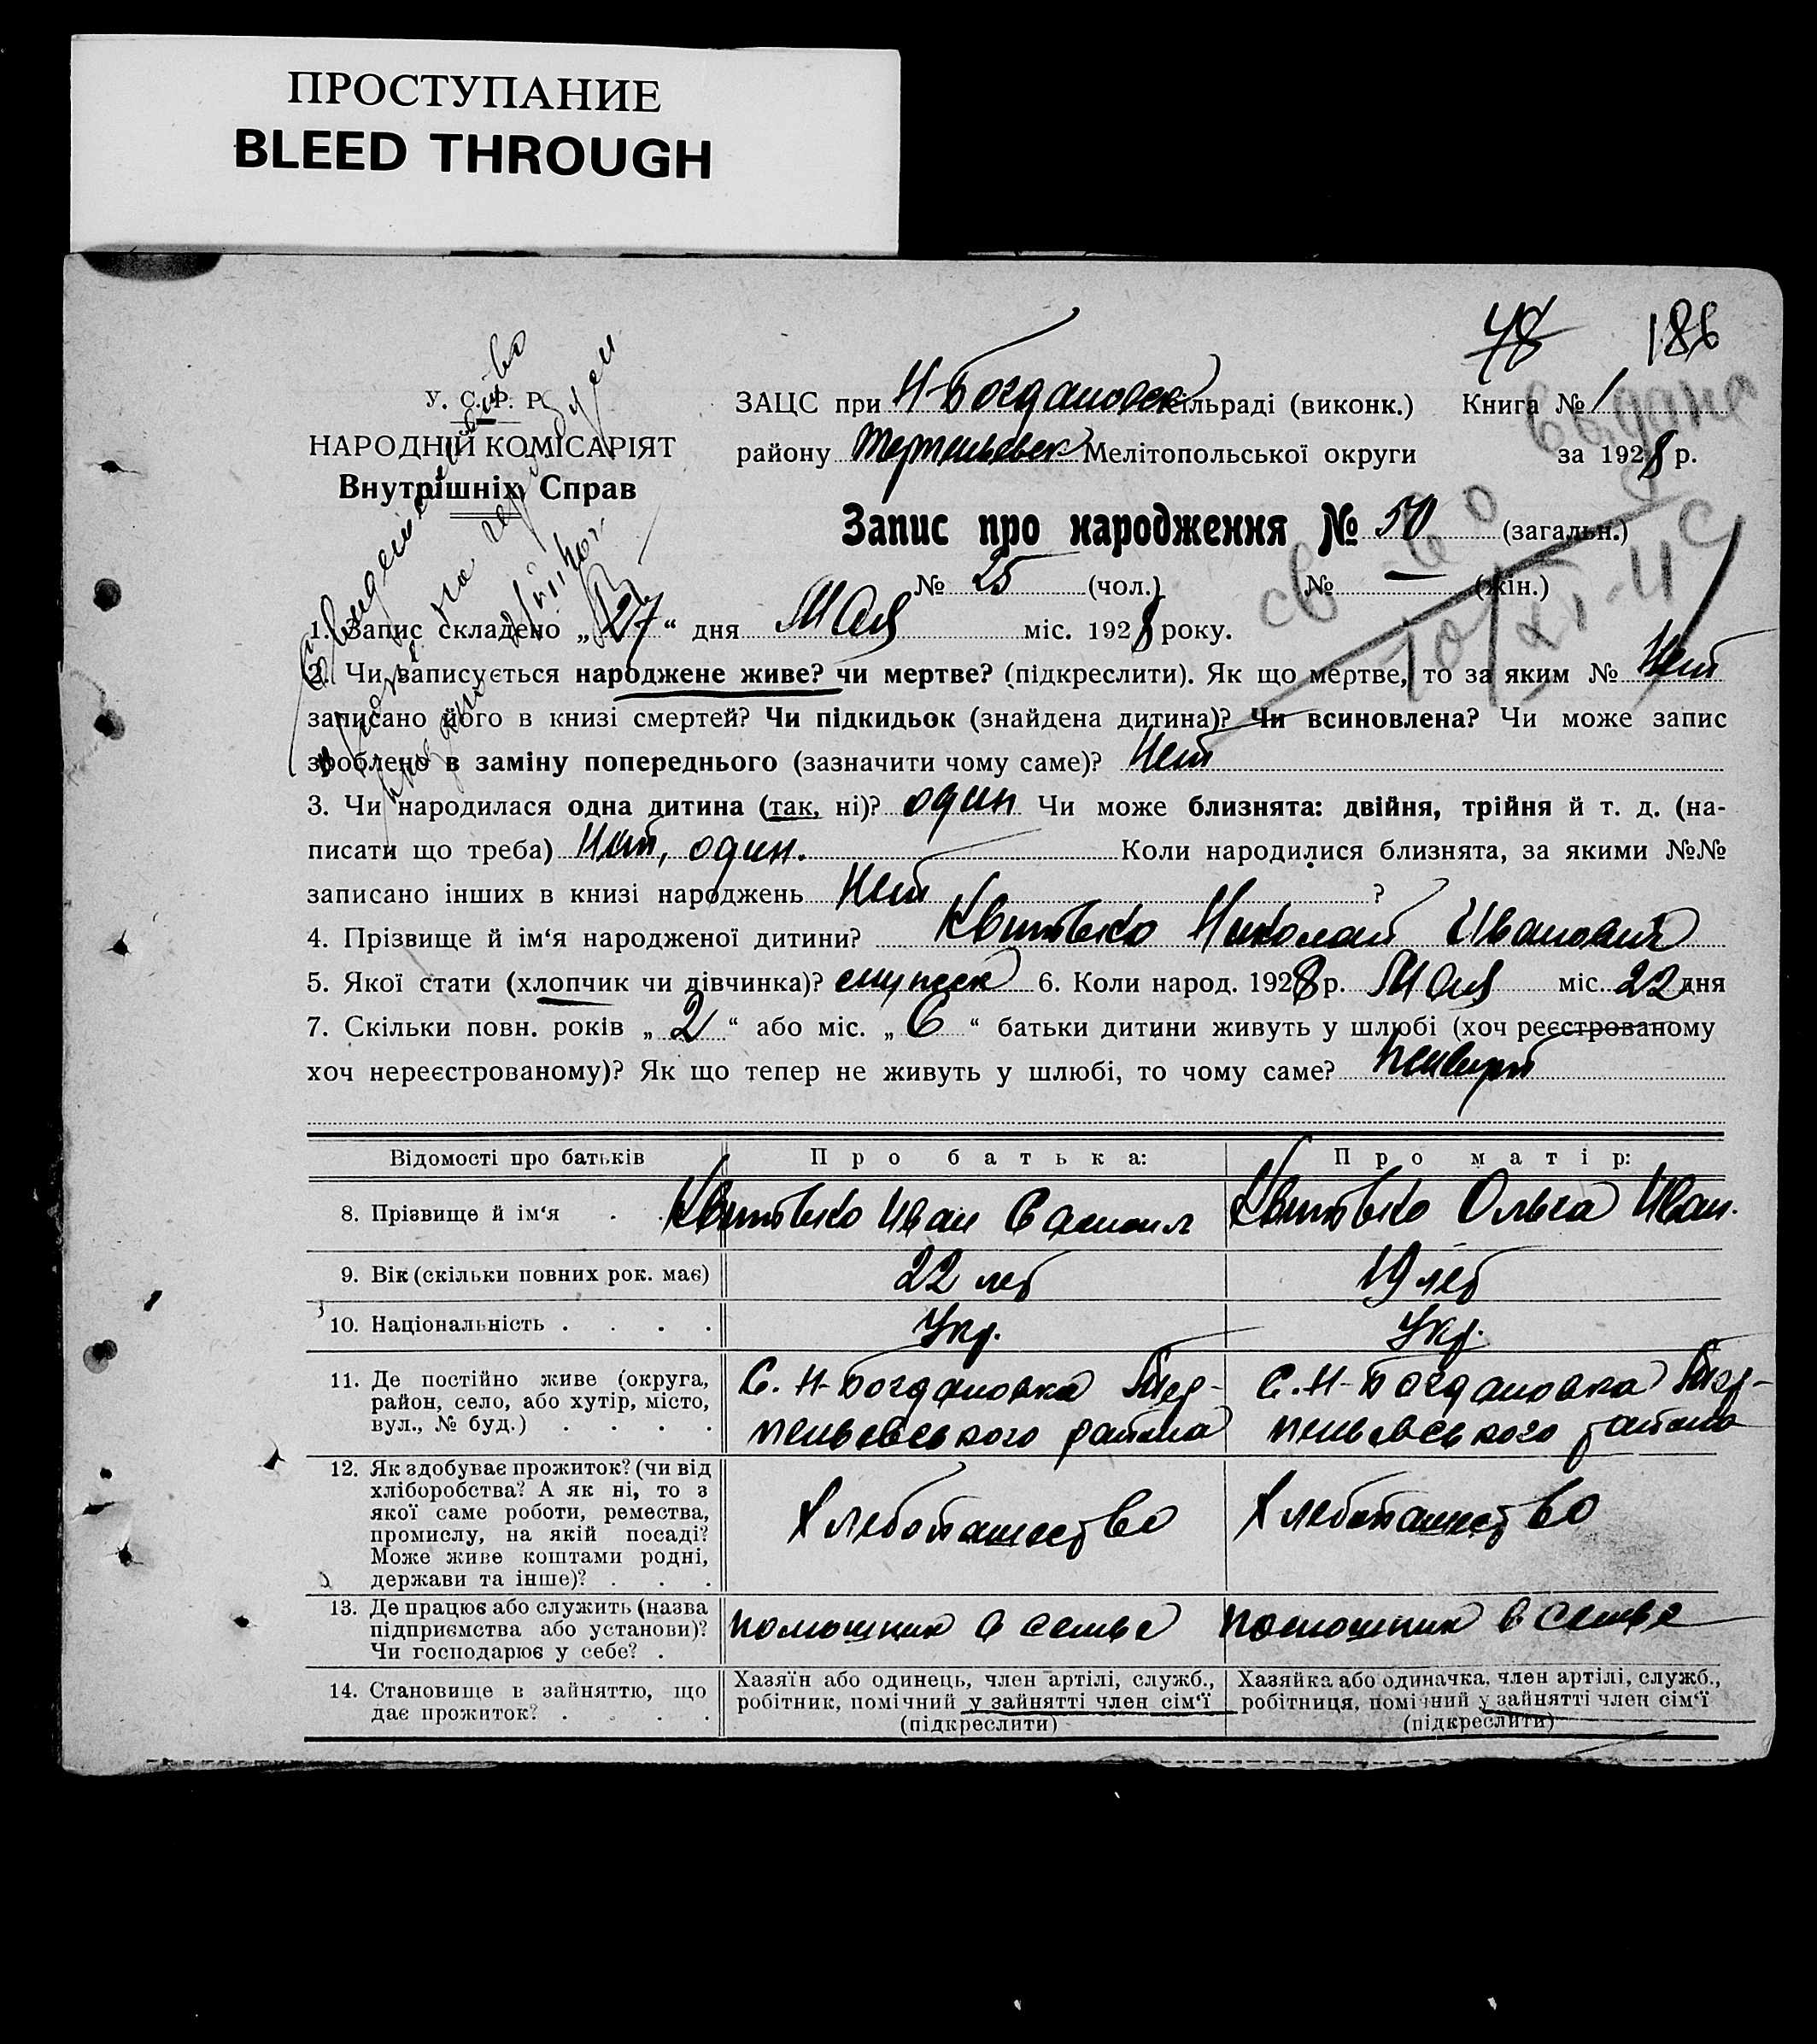 ПРОСТУПАНИЕ
BLEED THROUGH
48 186
У. С. Р. Р.
НАРОДНІЙ КОМІСАРІЯТ
Внутрішніх Справ
ЗАЦС при Н-Богдановск сільраді (виконк.) Книга № 1
району Терпеньевск Мелітопольської округи за 1928 р.
Выдана
св во
10/XI-
Запис про народження № 50 (загальн.)
№ 25 (чол.) № — (жін.)
1. Запис складено „27“ дня Мая міс. 1928 року.
2. Чи записується народжене живе? чи мертве? (підкреслити). Як що мертве, то за яким № Нет
записано його в книзі смертей? Чи підкидьок (знайдена дитина)? Чи всиновлена? Чи може запис
зроблено в заміну попереднього (зазначити чому саме)? Нет
3. Чи народилася одна дитина (так, ні)? один Чи може близнята: двійня, трійня й т. д. (на-
писати що треба) Нет, один. Коли народилися близнята, за якими №№
записано інших в книзі народжень Нет ?
4. Прізвище й ім‘я народженої дитини? Николай Иванович
5. Якої стати (хлопчик чи дівчинка)? 6. Коли народ. 1928 р. Мая міс. 22 дня
7. Скільки повн. років „2“ або міс. „6“ батьки дитини живуть у шлюбі (хоч реєстрованому
хоч нереєстрованому)? Як що тепер не живуть у шлюбі, то чому саме?
Відомості про батьків Про батька: Про матір:
8. Прізвище й ім‘я . . Иван Ольга Иван.
9. Вік (скільки повних рок. має) 22 лет 19 лет
10. Національність . . . . Укр. Укр.
11. Де постійно живе (округа,
район, село, або хутір, місто,
вул., № буд.) . . . .
С. Н-Богдановка Тер-
пеньевського района
С. Н-Богдановка Тер-
пеньевського района
12. Як здобуває прожиток? (чи від
хліборобства? А як ні, то з
якої саме роботи, ремества,
промислу, на якій посаді?
Може живе коштами родні,
держави та інше)? . . .
Хлебопашество
Хлебопашество
13. Де працює або служить (назва
підприємства або установи)?
Чи господарює у себе? .
помошник в семье
помошник в семье
14. Становище в зайняттю, що
дає прожиток? . . . .
Хазяїн або одинець, член артілі, служб.,
робітник, помічний у зайнятті член сім‘ї
(підкреслити)
Хазяйка або одиначка, член артілі, служб.,
робітниця, помічний у зайнятті член сім‘ї
(підкреслити)